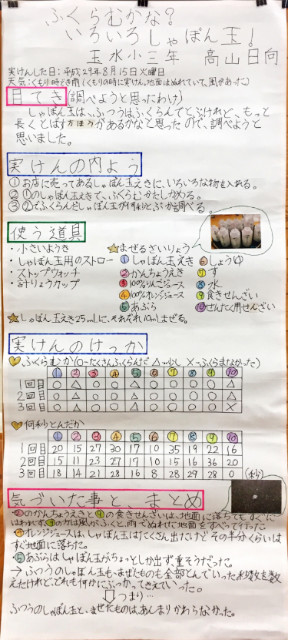 ふくらむかな?
いろいろしゃぼん玉!
玉水小三年 高山日向
実けんした日:平成23年8月15日火曜日
天気:くもり時々雨(くもりの時に実けん、地面はぬれていて、風があった)
目てき(調べようと思ったわけ)
しゃぼん玉は、ふつうはふくらんでとぶけれど、もっと
長くとばす方ほうがあるかなと思ったので、調べようと
思いました。
実けんの内よう
①お店に売ってあるしゃぼん玉えきに、いろいろな材を入れる。
②①のしゃぼん玉えきで、ふくらむかたしかめる。
③②でふくらんだしゃぼん玉が何秒とぶか調べる。
使う道具
・小さいようき
・しゃぼん玉用のストロー
・ストップウォッチ
・計りょうカップ
★まぜるざいりょう
①しゃぼん玉えき
②かんちょうえき
③100%りんごジュース
④100%オレンジジュース
⑤あぶら
⑥しょうゆ
⑦す
⑧水
⑨食きせんざい
⑩せんたく用せんざい
★しゃぼん玉えき25mLに、それぞれ10mLまぜる。
実けんのけっか
ふくらむか(○…たくさんふくらんだ △…少し ×…ふくらまなかった)
① ② ③ ④ ⑤ ⑥ ⑦ ⑧ ⑨ ⑩
1回目 ○ △ ○ ○ △ ○ ○ ○ ○ △
2回目 ○ △ ○ ○ △ ○ ○ ○ ○ △
3回目 ○ △ ○ ○ △ ○ ○ ○ ○ ×
何秒とんだか
① ② ③ ④ ⑤ ⑥ ⑦ ⑧ ⑨ ⑩
1回目 20 15 27 30 17 10 35 19 22 16
2回目 15 11 23 27 17 10 15 16 36 20
3回目 18 14 21 28 16 8 28 29 28 0 (秒)
気づいた事と、まとめ
オレンジジュースは、しゃぼん玉はたくさん出たけど、その半分くらいは
すぐ地面に落ちた。
あぶらはしゃぼん玉がちょっとしか出ず、重そうだった。
→ふつうのしゃぼん玉も、まぜたものも全部とんでいった
つまり…
ふつうのしゃぼん玉と、まぜたものは、あんまりかわらなかった。